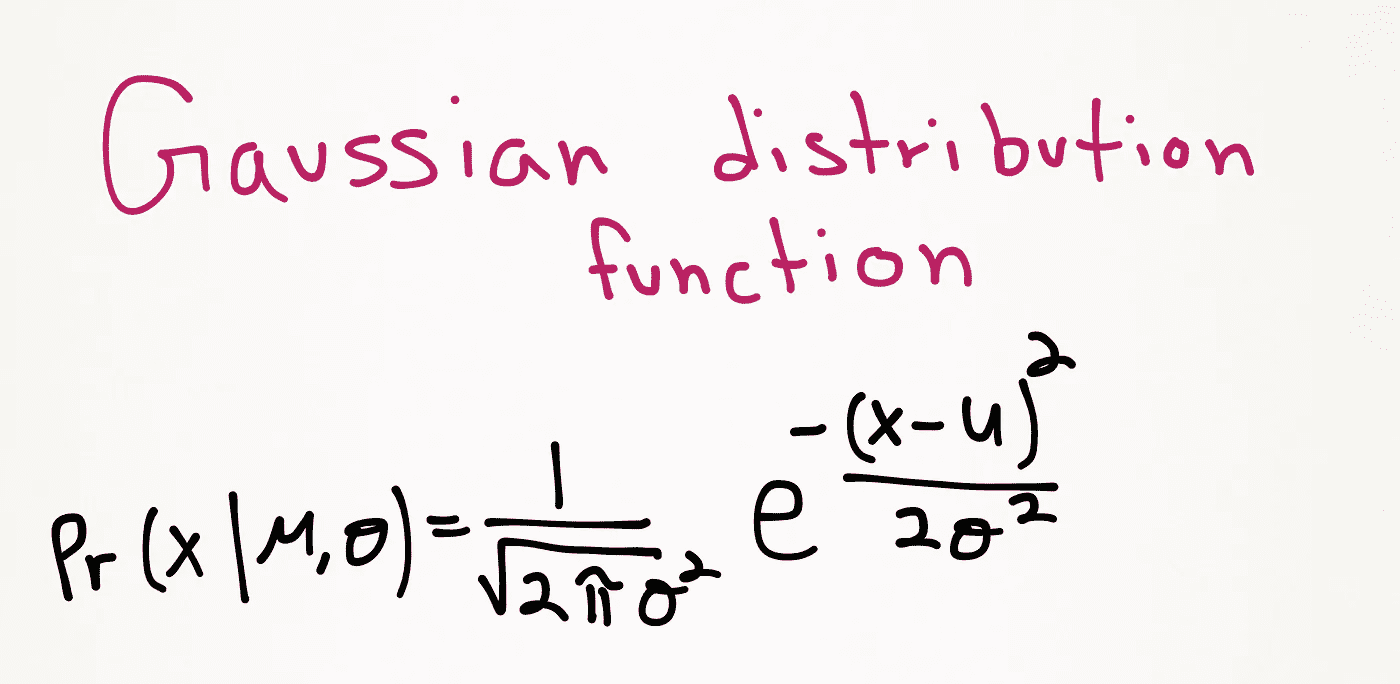 Gaussian distribution
function
Pr(x|μ,σ) = 1/√(2πσ²) e^(-(x-μ)²/(2σ²))